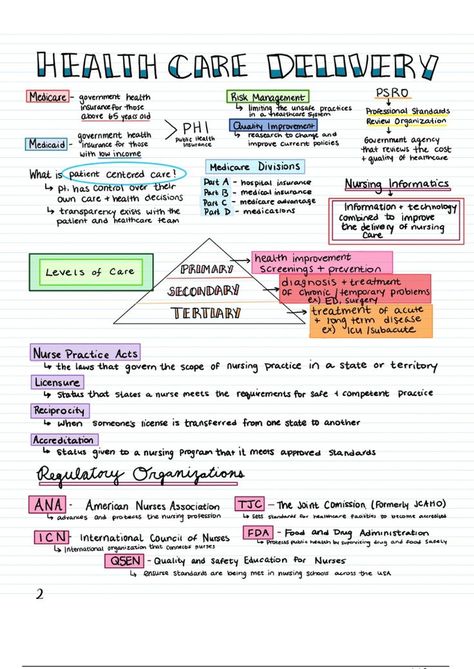 HEALTH CARE DELIVERY
Medicare - government health
insurance for those
above 65 years old
Medicaid - government health
insurance for those
with low income
> PHI
Public Health
Insurance
Risk Management
↳ limiting the unsafe practices
in a healthcare system
Quality Improvement
↳ research to change and
improve current policies
PSRO
↓
Professional Standards
Review Organization
↓
Government agency
that reviews the cost
+ quality of healthcare
What is patient centered care?
↳ pt. has control over their
own care + health decisions
↳ transparency exists with the
patient and healthcare team
Medicare Divisions
Part A - hospital insurance
Part B - medical insurance
Part C - medicare advantage
Part D - medications
Nursing Informatics
↓
Information + technology
combined to improve
the delivery of nursing
care
Levels of Care
PRIMARY
health improvement
screenings + prevention
SECONDARY
diagnosis + treatment
of chronic / temporary problems
ex) ED, surgery
TERTIARY
treatment of acute
+ long term disease
ex) ICU / subacute
Nurse Practice Acts
↳ the laws that govern the scope of nursing practice in a state or territory
Licensure
↳ status that states a nurse meets the requirements for safe + competent practice
Reciprocity
↳ when someone's license is transferred from one state to another
Accreditation
↳ status given to a nursing program that it meets approved standards
Regulatory Organizations
ANA - American Nurses Association
↳ advances and protects the nursing profession
TJC - The Joint Comission (Formerly JCAHO)
↳ sets standard for healthcare facilities to become accredited
ICN - International Council of Nurses
↳ International organization that connects nurses
FDA - Food and Drug Administration
↳ Protects public health by supervising drug and food safety
QSEN - Quality and Safety Education for Nurses
↳ ensure standards are being met in nursing schools across the USA
2